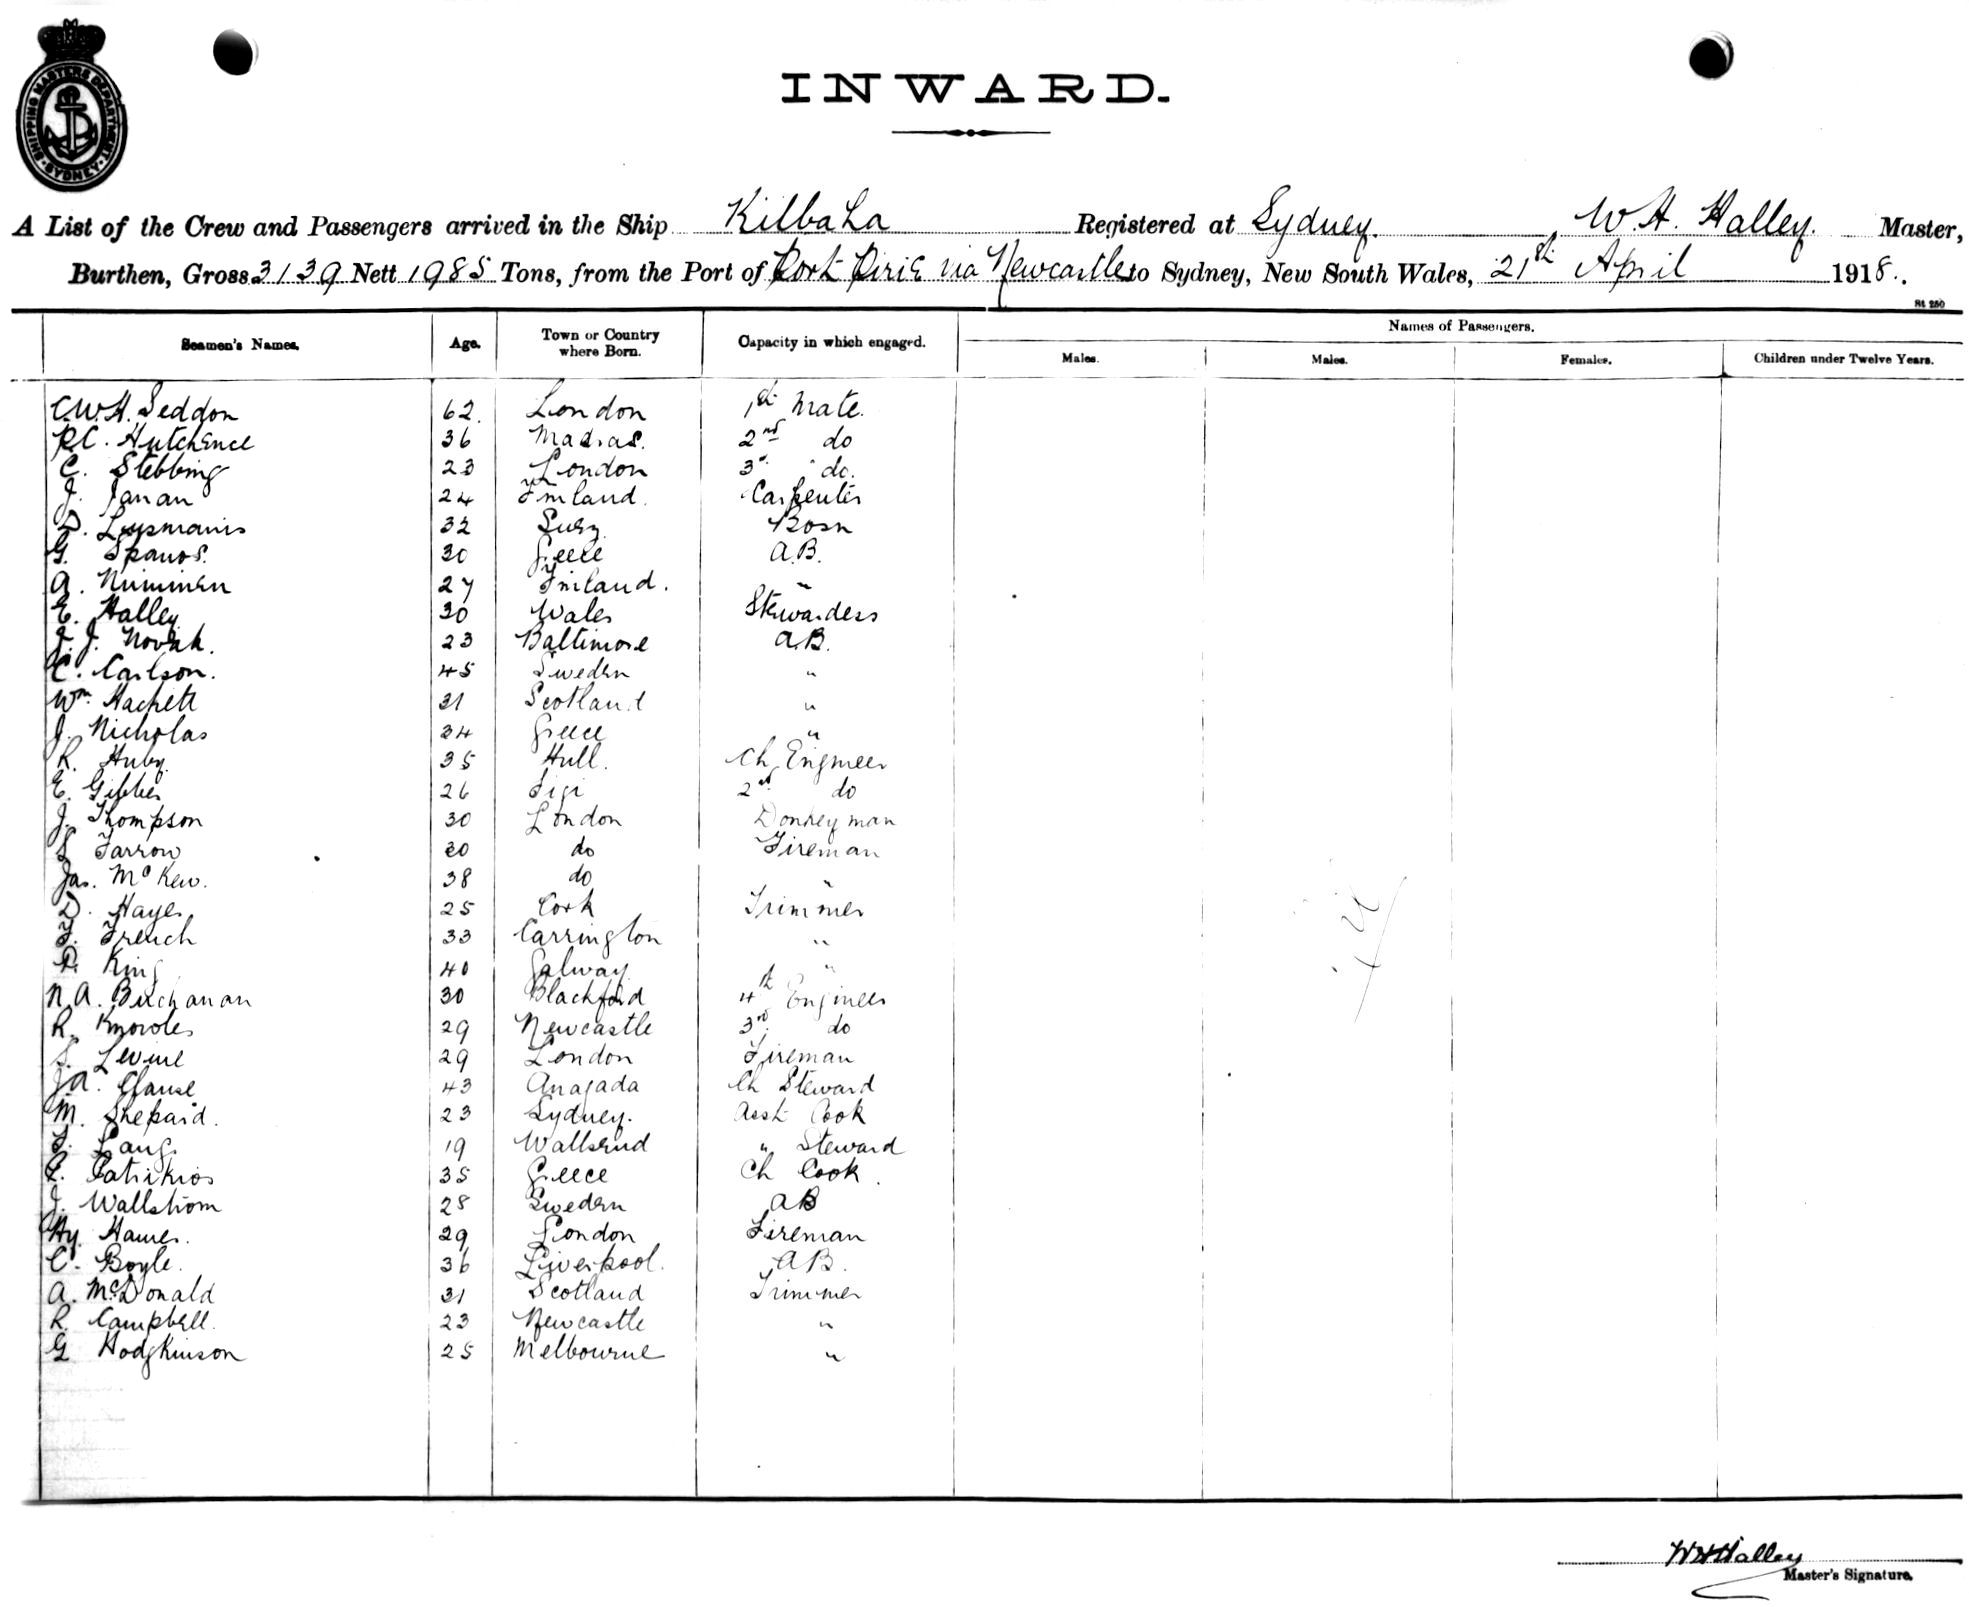 SHIPPING MASTERS DEPARTMENT
SYDNEY
INWARD.
A List of the Crew and Passengers arrived in the Ship KilbaHa Registered at Sydney. W. H. Halley. Master,
Burthen, Gross 3139 Nett 1985 Tons, from the Port of Port Pirie via Newcastle to Sydney, New South Wales, 21st April 1918.
St 250
Seamen's Names. Age. Town or Country where Born. Capacity in which engaged. Names of Passengers.
Males. Males. Females. Children under Twelve Years.
C W H. Seddon 62. London 1st Mate.
R C. Hutchence 36 Madras. 2nd do
C. Stebbing 23 London 3rd do.
J. Janan 24 Finland. Carpenter
D. 32 Bosn
G. Spanos. 30 Greece A.B.
A. Numinen 27 Finland. "
E. Halley 30 Wales Stewardess
J. J. Novak. 23 Baltimore A.B.
C. Carlson. 45 Sweden "
Wm. Hackett 31 Scotland "
J. Nicholas 34 Greece "
R. Huby 35 Hull. Ch Engineer
E. Gibbes 26 Figi 2nd do
J. Thompson 30 London Donkeyman
S Farrow 30 do Fireman
Jas. McKew. 38 do "
D. Hayes 25 Cork Trimmer
F. French 33 Carrington "
P. King 40 Galway "
N. A. Buchanan 30 Blackford 4th Engineer
R. Knowles 29 Newcastle 3rd do
S. Levine 29 London Fireman
J A. Clause 43 Anagada Ch Steward
M. Shepard. 23 Sydney. Asst Cook
F. Lang. 19 Wallsend " Steward
E. Patrikios 35 Greece Ch Cook.
J. Wallstrom 28 Sweden AB
Hy. Hames. 29 London Fireman
C. Boyle. 36 Liverpool. A.B.
A. McDonald 31 Scotland Trimmer
R. Campbell. 23 Newcastle "
G Hodgkinson 25 Melbourne "
W H Halley
Master's Signature.